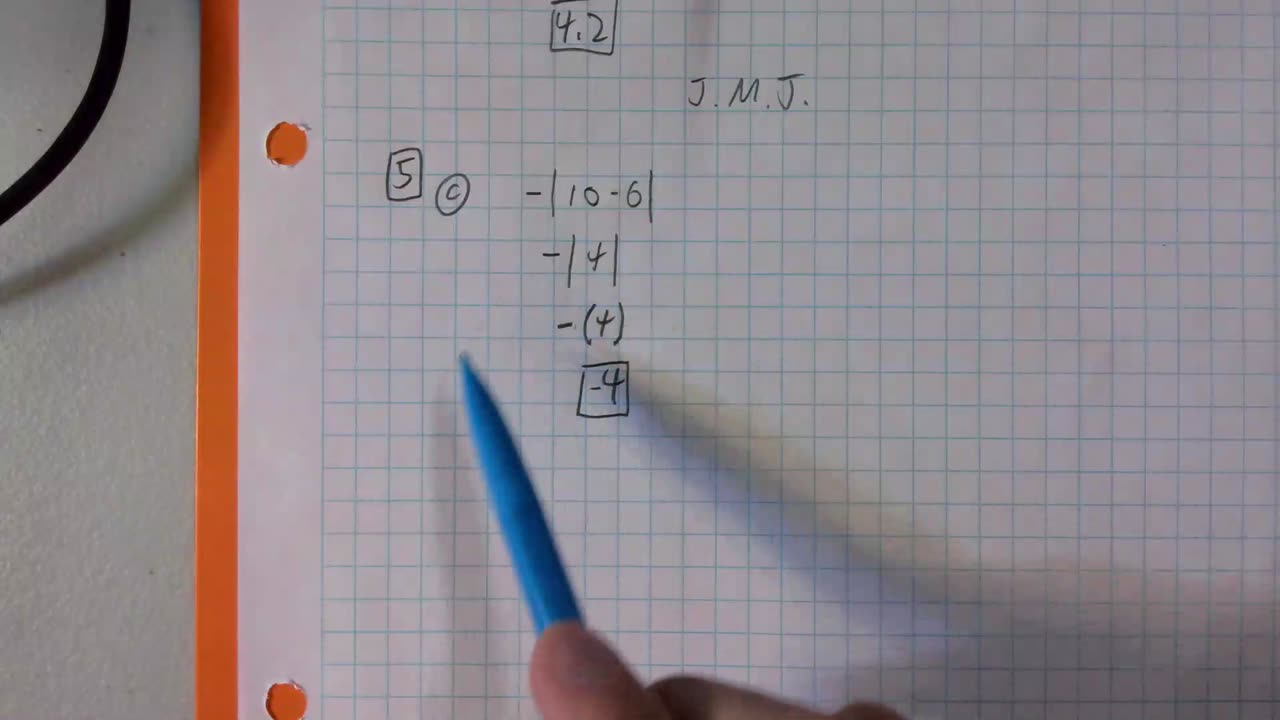 4.2
J. M. J.
5 c -|10-6|
-|4|
-(4)
-4